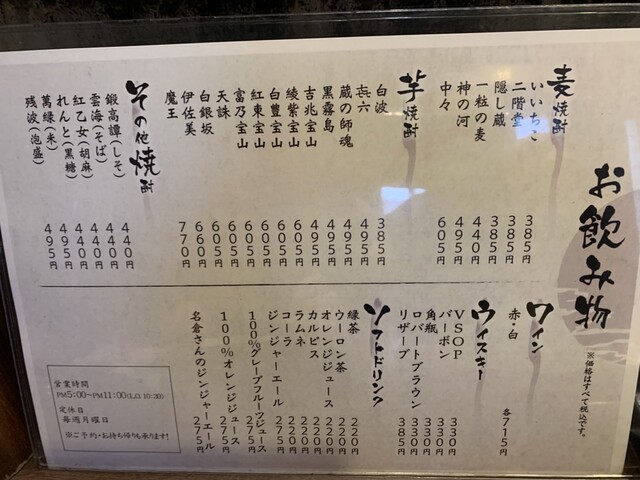 お飲み物
※価格はすべて税込です。
麦焼酎
いいちこ 385円
二階堂 385円
隠し蔵 385円
一粒の麦 440円
神の河 495円
中々 605円
芋焼酎
白波 385円
㐂六 495円
蔵の師魂 495円
黒霧島 495円
吉兆宝山 495円
綾紫宝山 605円
白豊宝山 605円
紅東宝山 605円
富乃宝山 605円
天誅 605円
白銀坂 605円
伊佐美 660円
魔王 770円
その他焼酎
鍛高譚(しそ) 440円
雲海(そば) 440円
紅乙女(胡麻) 440円
れんと(黒糖) 440円
萬緑(米) 495円
残波(泡盛) 495円
ワイン
赤・白 各715円
ウイスキー
VSOP 330円
バーボン 330円
角瓶 330円
ロバートブラウン 330円
リザーブ 385円
ソフトドリンク
緑茶 220円
ウーロン茶 220円
オレンジジュース 220円
カルピス 220円
ラムネ 220円
コーラ 220円
ジンジャーエール 275円
100%グレープフルーツジュース 275円
100%オレンジジュース 275円
名倉さんのジンジャーエール 275円
営業時間
PM5:00〜PM11:00(L.O. 10:30)
定休日
毎週月曜日
※ご予約・お持ち帰りも承ります!